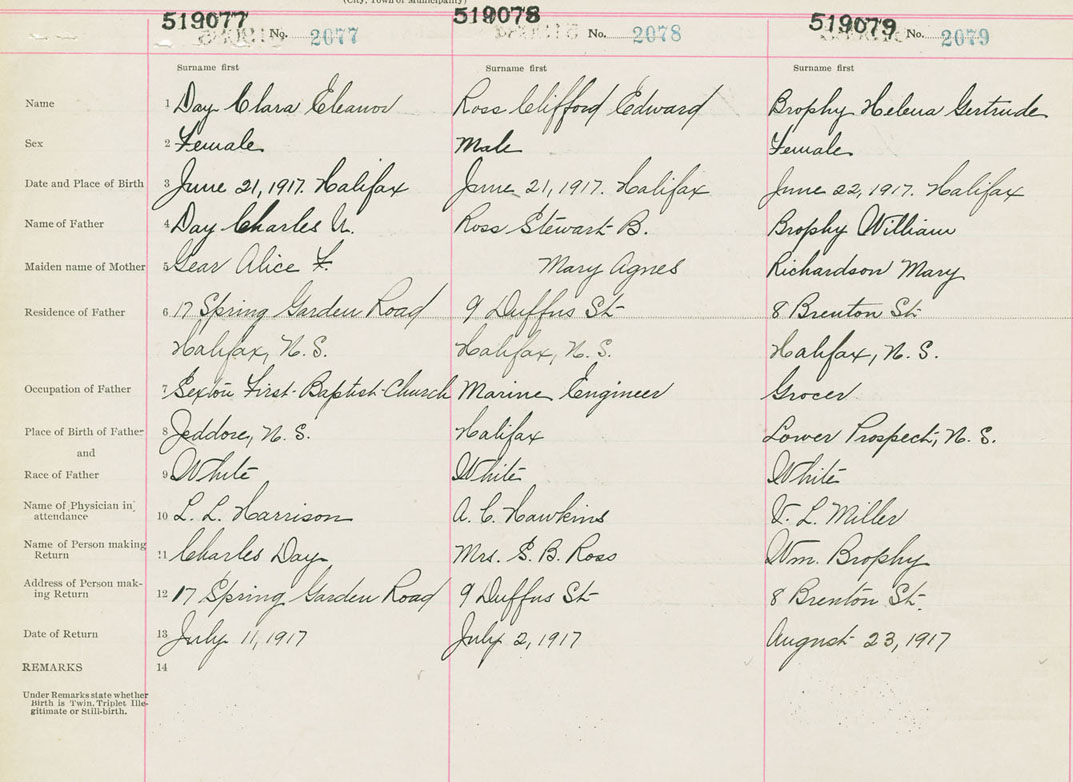 (City, Town or Municipality)
519077 519078 519079
No. 2077 No. 2078 No. 2079
Surname first Surname first Surname first
Name 1 Day Clara Eleanor Ross Clifford Edward Brophy Helena Gertrude
Sex 2 Female Male Female
Date and Place of Birth 3 June 21, 1917. Halifax June 21, 1917. Halifax June 22, 1917. Halifax
Name of Father 4 Day Charles U. Ross Stewart B. Brophy William
Maiden name of Mother 5 Gear Alice F. Mary Agnes Richardson Mary
Residence of Father 6 17 Spring Garden Road 9 Duffus St 8 Brenton St
Halifax, N.S. Halifax, N.S. Halifax, N.S.
Occupation of Father 7 Sexton First Baptist Church Marine Engineer Grocer
Place of Birth of Father 8 Jeddore, N.S. Halifax Lower Prospect, N.S.
and
Race of Father 9 White White White
Name of Physician in attendance 10 L. L. Harrison A. C. Hawkins V. L. Miller
Name of Person making Return 11 Charles Day Mrs. S. B. Ross Wm. Brophy
Address of Person mak-
ing Return 12 17 Spring Garden Road 9 Duffus St 8 Brenton St.
Date of Return 13 July 11, 1917 July 2, 1917 August 23, 1917
REMARKS 14
Under Remarks state whether
Birth is Twin. Triplet Ille-
gitimate or Still-birth.